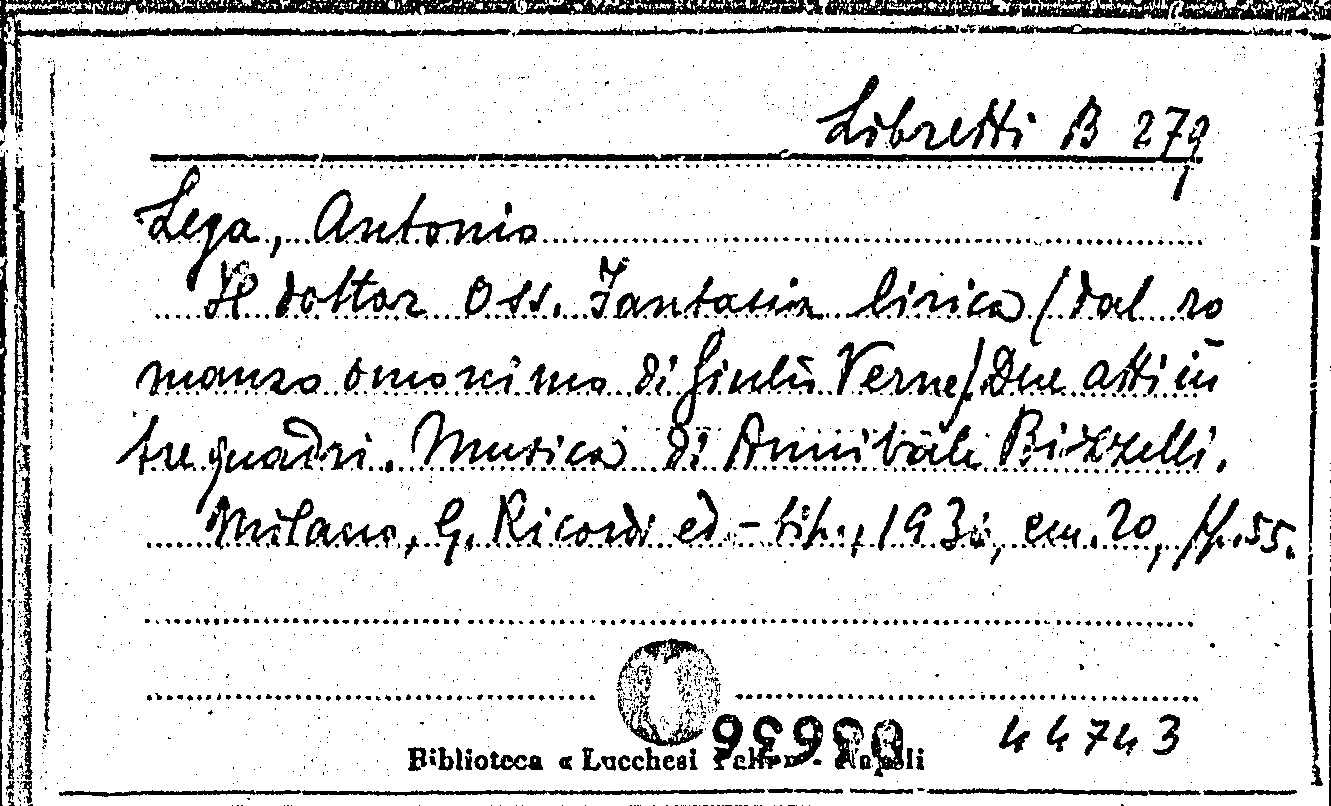 Libretti B 279
Lega, Antonio
Il dottor Oss. Fantasia lirica (dal ro
manzo omonimo di Giulio Verne) Due atti in
tre quadri. Musica di Annibale Bizzelli.
Milano, G. Ricordi ed.-tip., cm. 20, pp. 55.
44743
Biblioteca « Lucchesi - Napoli